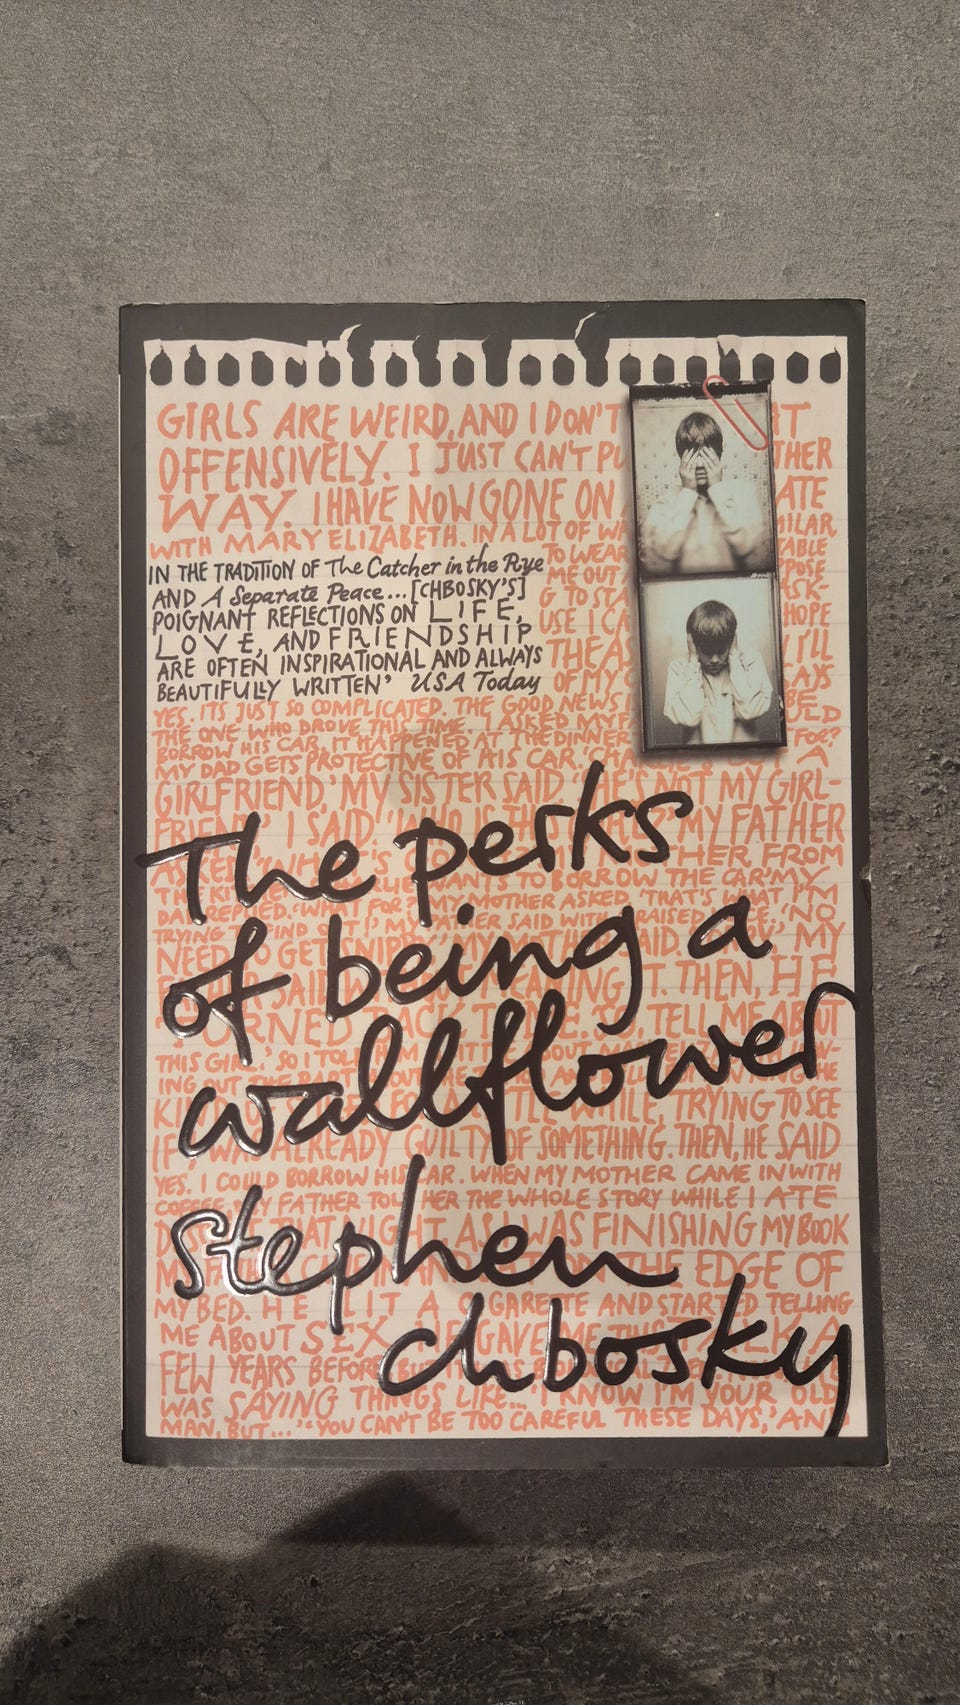 GIRLS ARE WEIRD, AND I DON'T
OFFENSIVELY. I JUST CAN'T PU THER
WAY. I HAVE NOW GONE ON ATE
WITH MARY ELIZABETH. IN A LOT OF WA MILAR
TO WEAR TABLE
IN THE TRADITION OF The Catcher in the Rye
ME OUT POSE
AND A Separate Peace... [CHBOSKY'S]
G TO STA ASK-
POIGNANT REFLECTIONS ON LIFE,
USE I CA HOPE
LOVE, AND FRIENDSHIP
THE AS I'LL
ARE OFTEN INSPIRATIONAL AND ALWAYS
OF MY AYS
BEAUTIFULLY WRITTEN' USA Today
YES. IT'S JUST SO COMPLICATED. THE GOOD NEWS I BE
THE ONE WHO DROVE THIS TIME. I ASKED MY F
BORROW HIS CAR. IT HAPPENED AT THE DINNER FOR?
MY DAD GETS PROTECTIVE OF HIS CAR. A
GIRLFRIEND,' MY SISTER SAID. 'SHE'S NOT MY GIRL-
FRIEND,' I SAID. 'WHO IS THIS MY FATHER
The perks
of being a
wallflower
ASKED. THER FROM
THE KI WANTS TO BORROW THE CAR.' 'MY
DAD REPLIED. 'WHAT FOR?' MY MOTHER ASKED. 'THAT'S WHAT I'M
TRYING FIND FATHER SAID WITH RAISED 'NO
NEED TO GET SNIPPY,' MY MOTHER SAID. MY
FATHER SAID MEANING IT. THEN, HE
TURNED BACK TO ME. 'SO, TELL ME ABOUT
THIS GIRL.' SO I TOLD HIM A LITTLE ABOUT
ING OUT THE PART ABOUT THE HE
KI FOR A LITTLE WHILE, TRYING TO SEE
IF I WAS ALREADY GUILTY OF SOMETHING. THEN, HE SAID
YES. I COULD BORROW HIS CAR. WHEN MY MOTHER CAME IN WITH
COFFEE, MY FATHER TOLD HER THE WHOLE STORY WHILE I ATE
THAT NIGHT, AS I WAS FINISHING MY BOOK
MY FATHER CAME IN AND ON THE EDGE OF
MY BED. HE LIT A CIGARETTE AND STARTED TELLING
ME ABOUT SEX. HE GAVE ME THIS TALK A
FEW YEARS BEFORE, BUT
WAS SAYING THINGS LIKE... 'I KNOW I'M YOUR OLD
MAN, BUT...' 'YOU CAN'T BE TOO CAREFUL THESE DAYS,' AND
stephen
chbosky